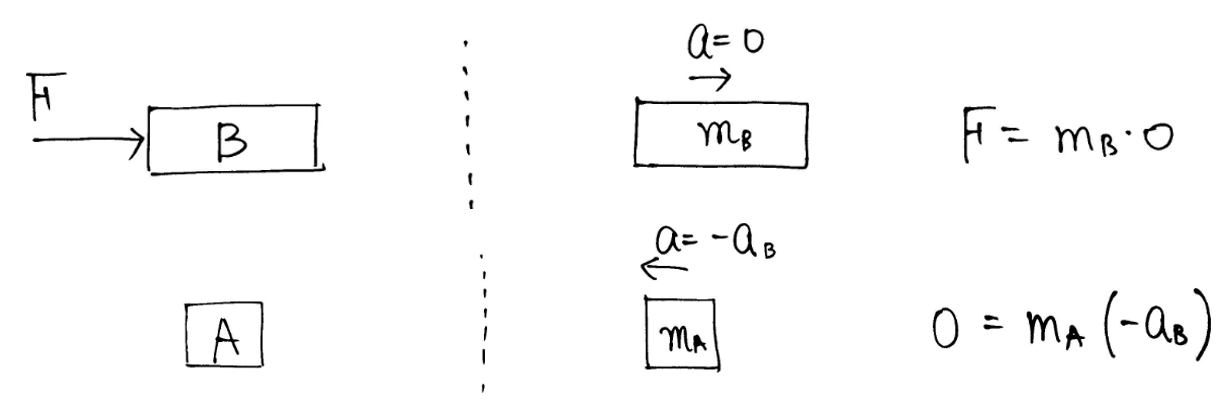 a = 0
F
B
m_B
F = m_B · 0
a = -a_B
A
m_A
0 = m_A (-a_B)